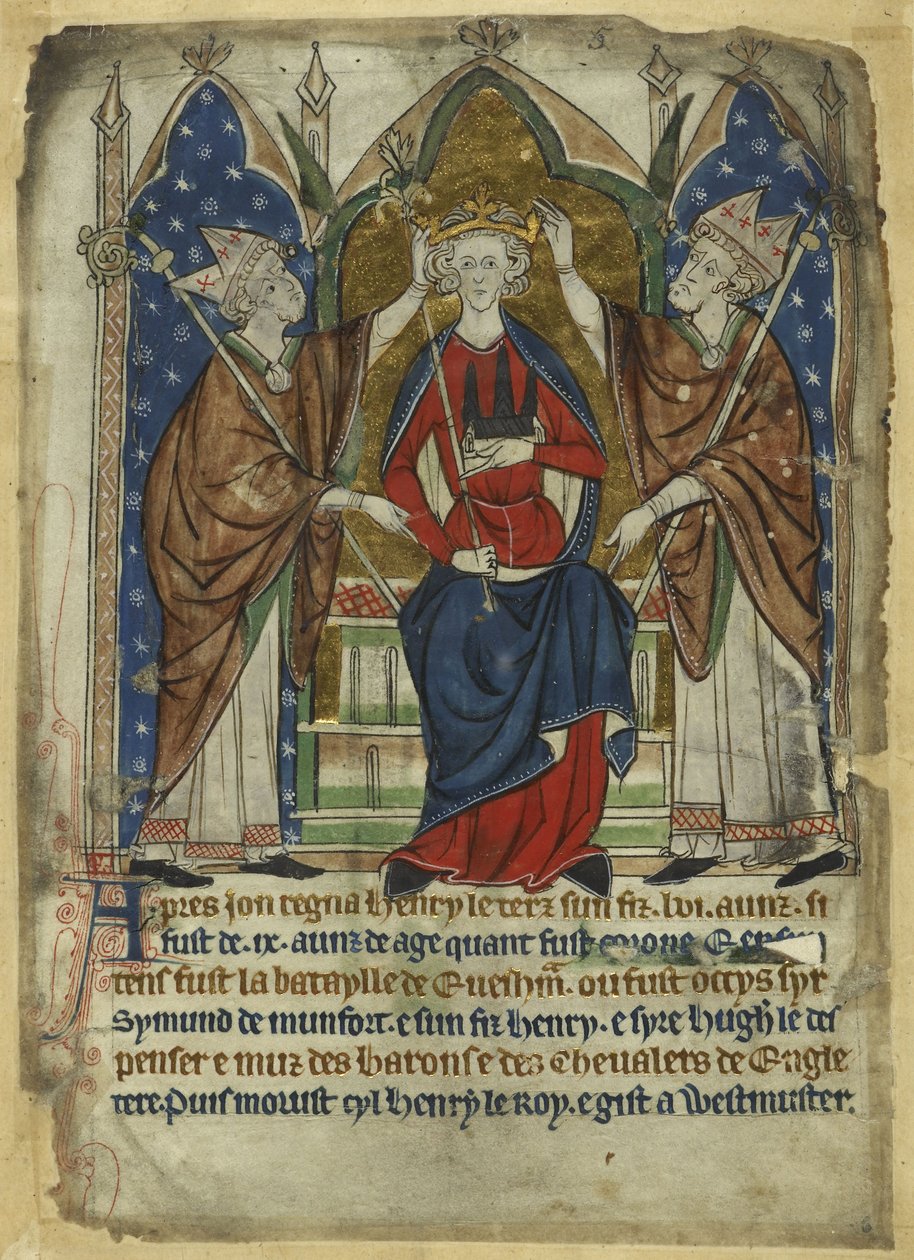 Apres Jon regna Henry le terz sun fiz .lvi. aunz. si
fust de .ix. aunz de age quant fust corone E en sun
tens fust la bataylle de Euesham. ou fust occys syr
Symund de munfort. e sun fiz henry. e syre hugh le des
penser e muz des barons e des Cheualers de Engle
tere. Puis moruist cyl henry le Roy. e gist a Westmuster.
5
6